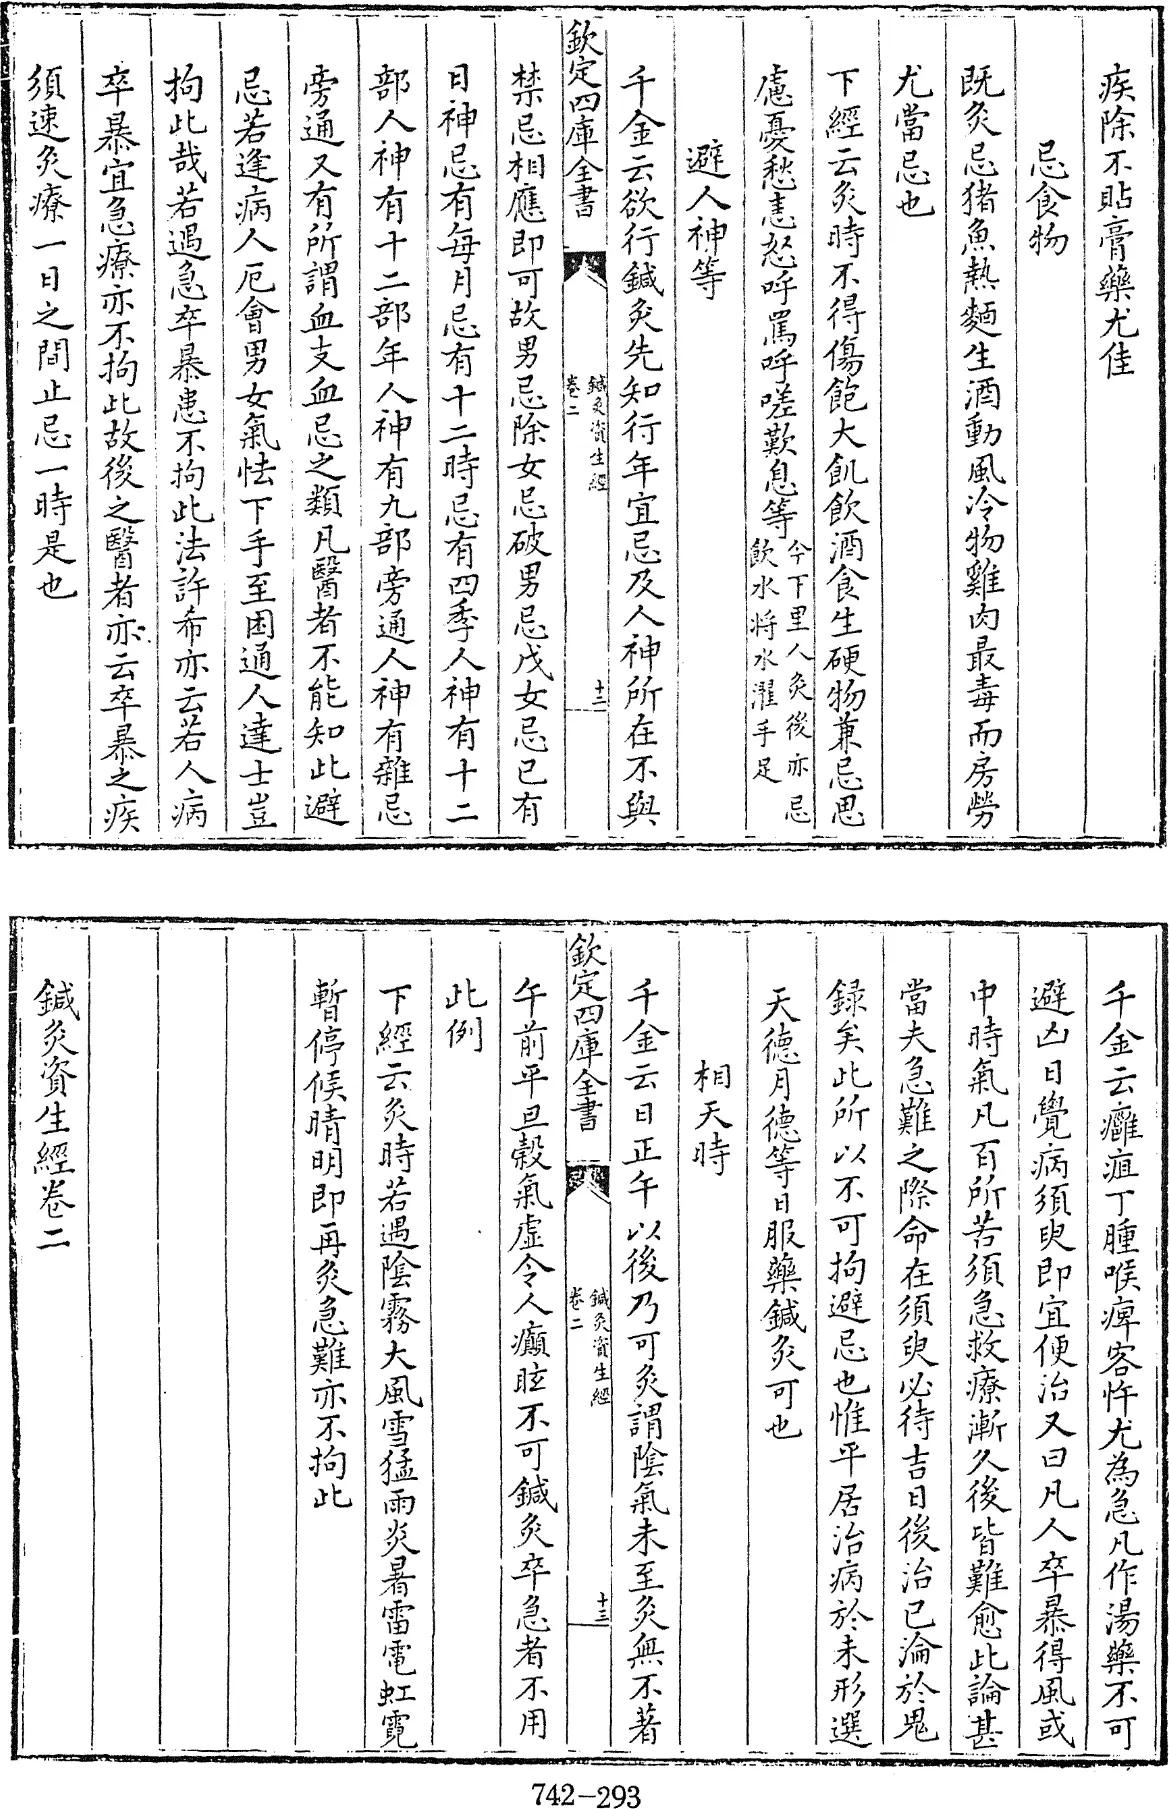 疾除不貼膏藥尤佳
忌食物
既灸忌猪魚熱麵生酒動風冷物雞肉最毒而房勞
尤當忌也
下經云灸時不得傷飽大飢飲酒食生硬物兼忌思
慮憂愁恚怒呼罵呼嗟歎息等今下里人灸後亦忌
飲水將水濯手足
避人神等
千金云欲行鍼灸先知行年宜忌及人神所在不與
欽定四庫全書
鍼灸資生經
卷二
十二
禁忌相應即可故男忌除女忌破男忌戊女忌已有
日神忌有每月忌有十二時忌有四季人神有十二
部人神有十二部年人神有九部旁通人神有雜忌
旁通又有所謂血支血忌之類凡醫者不能知此避
忌若逢病人厄會男女氣怯下手至困通人達士豈
拘此哉若遇急卒暴患不拘此法許希亦云若人病
卒暴宜急療亦不拘此故後之醫者亦云卒暴之疾
須速灸療一日之間止忌一時是也
千金云癰疽丁腫喉痺客忤尤為急凡作湯藥不可
避凶日覺病須臾即宜便治又曰凡人卒暴得風或
中時氣凡百所苦須急救療漸久後皆難愈此論甚
當夫急難之際命在須臾必待吉日後治已淪於鬼
録矣此所以不可拘避忌也惟平居治病於未形選
天德月德等日服藥鍼灸可也
相天時
千金云日正午以後乃可灸謂陰氣未至灸無不著
欽定四庫全書
鍼灸資生經
卷二
十三
午前平旦穀氣虛令人癲眩不可鍼灸卒急者不用
此例
下經云灸時若遇陰霧大風雪猛雨炎暑雷電虹霓
暫停候晴明即再灸急難亦不拘此
鍼灸資生經卷二
742-293